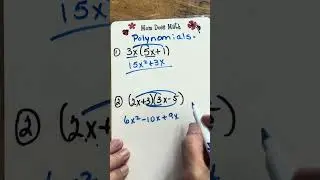 Mom Does Math
Polynomials.
① 3x(5x+1)
15x²+3x
② (2x+3)(3x-5)
6x²-10x+9x